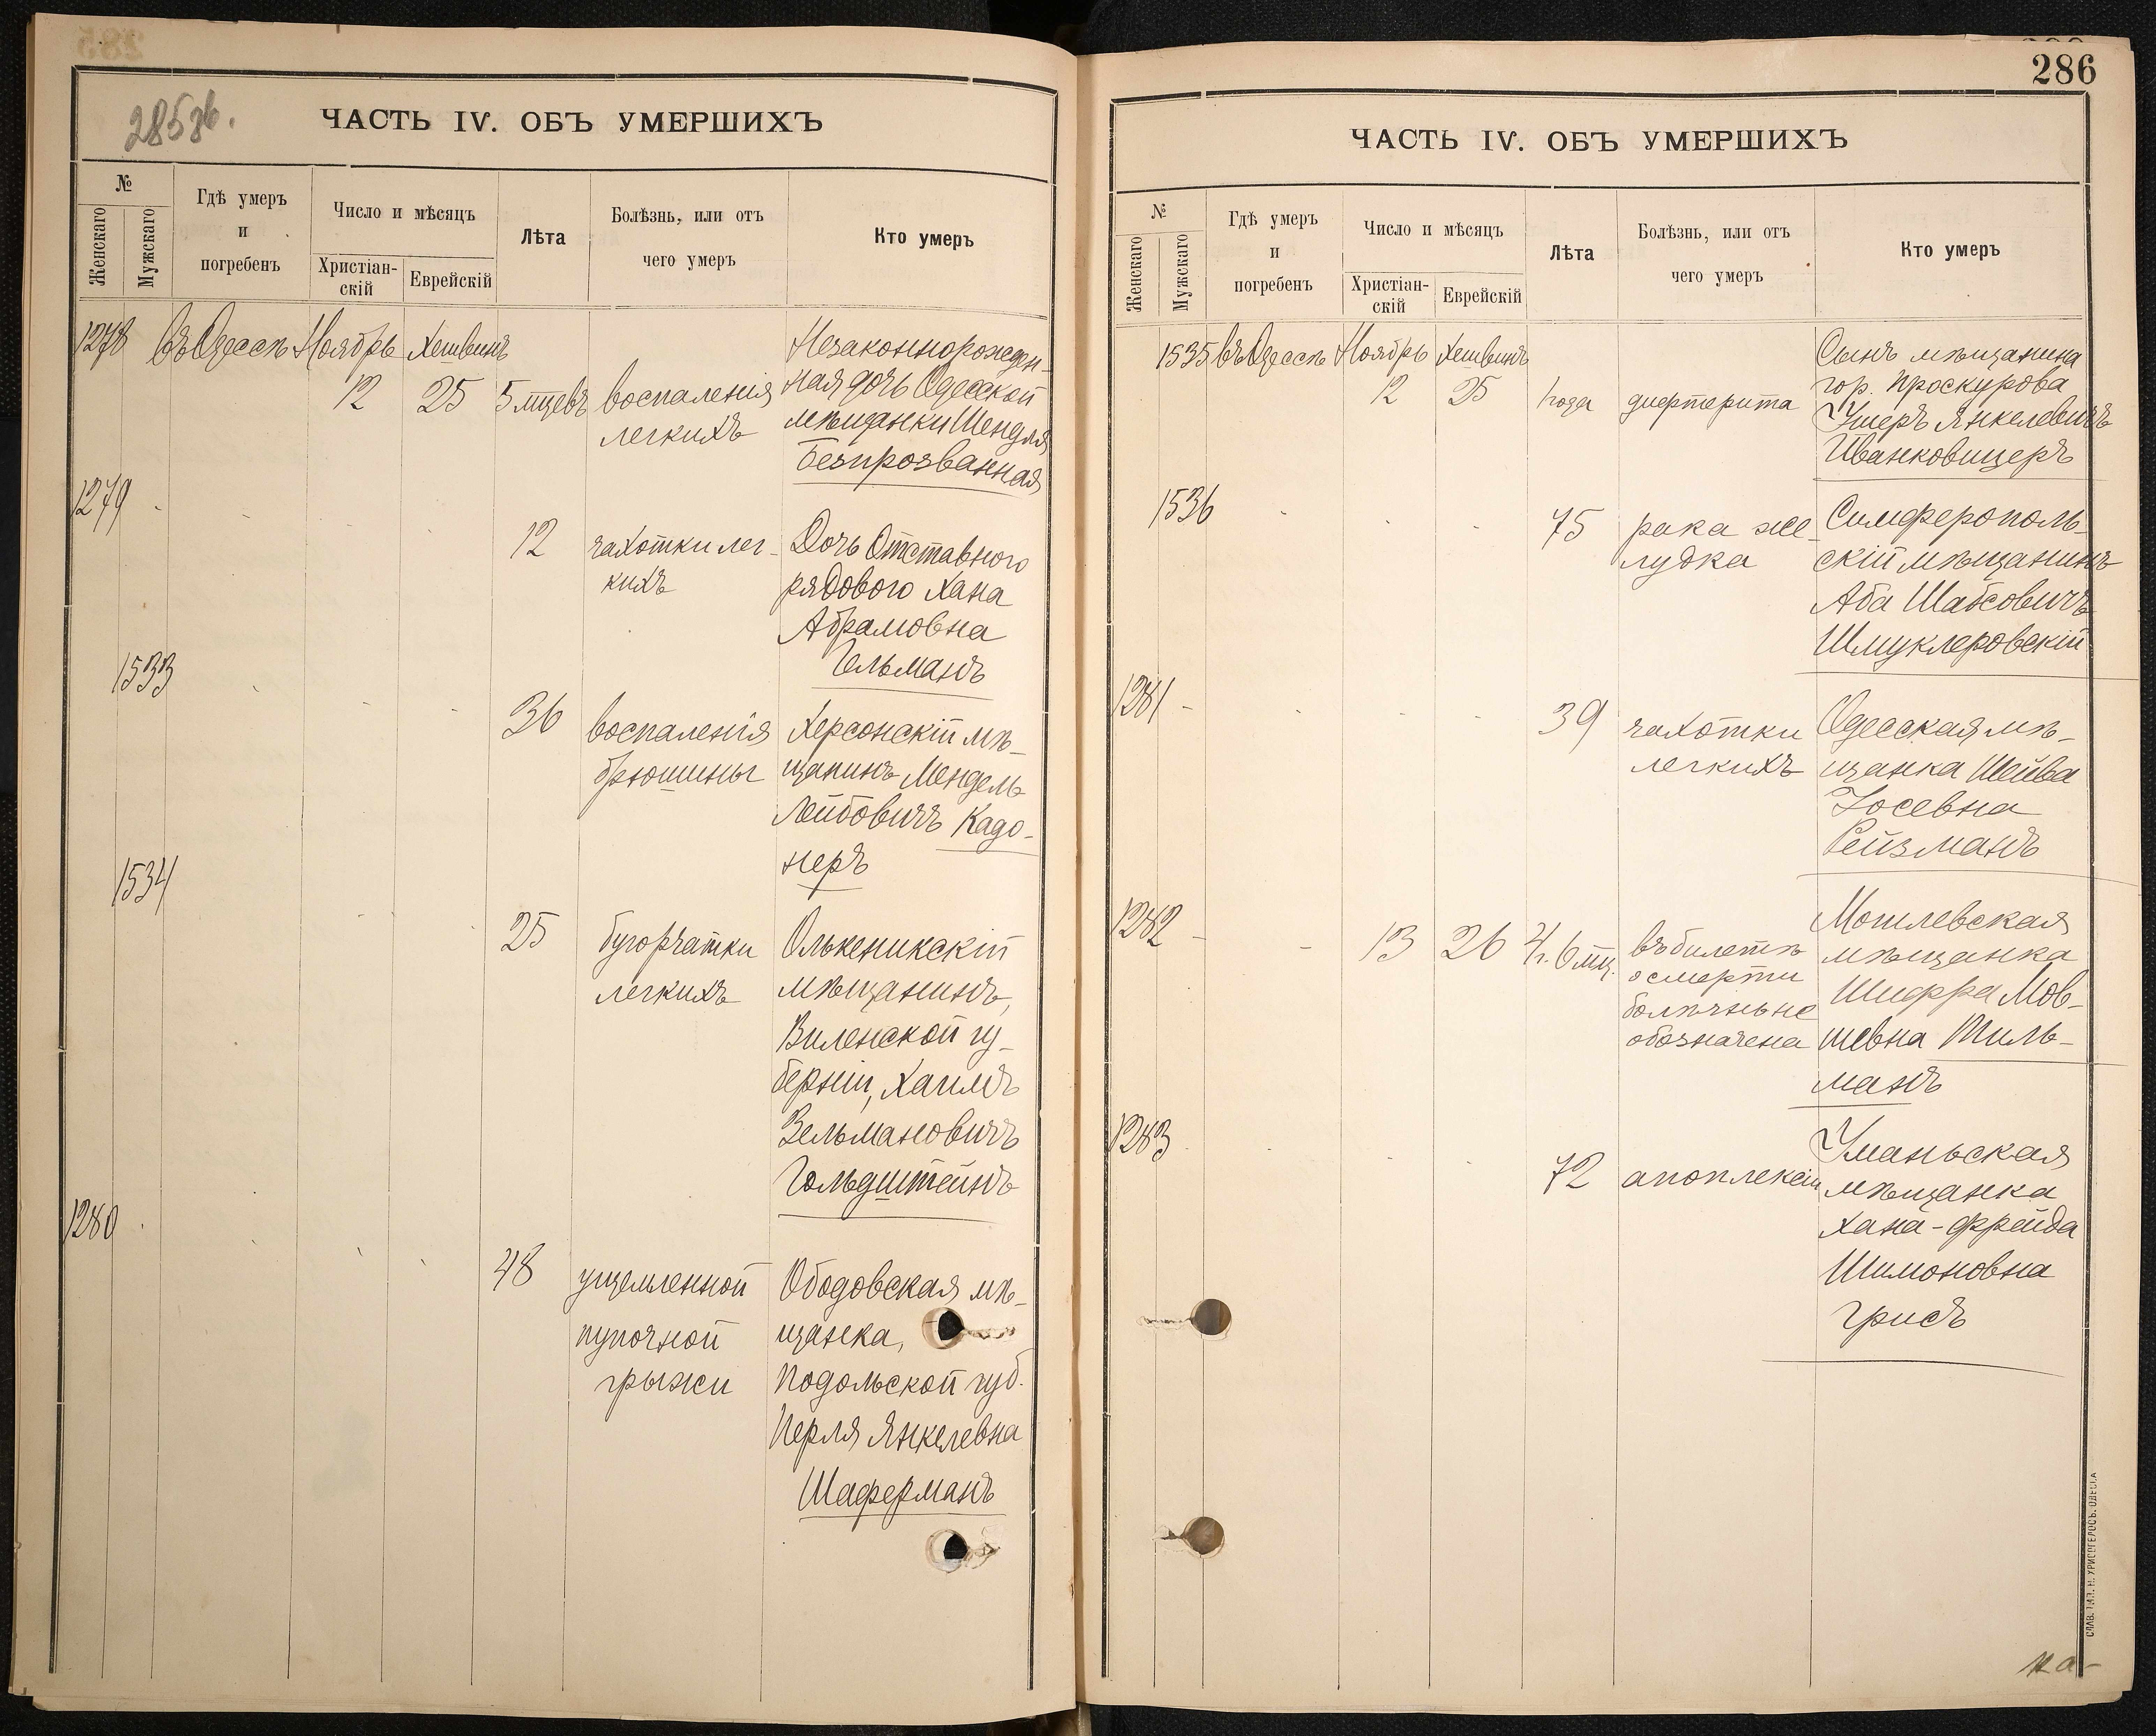 285 зв.
ЧАСТЬ IV. ОБЪ УМЕРШИХЪ
№
Женскаго
Мужскаго
Гдѣ умеръ
и
погребенъ
Число и мѣсяцъ
Христіан-
скій
Еврейскій
Лѣта
Болѣзнь, или отъ
чего умеръ
Кто умеръ
1278 въ Одессѣ Ноябрь Хешвинъ Незаконнорожден-
12 25 5 мцевъ воспаленія ная дочь Одесской
легкихъ мѣщанки Шендля
Безпрозванная
1279
12 чахотки лег- Дочь Отставного
кихъ рядового Хана
Абрамовна
Гельманъ
1533
36 воспаленія Херсонскій мѣ-
брюшины щанинъ Мендель
Лейбовичъ Кадо-
неръ
1534
25 бугорчатки Олькеникскій
легкихъ мѣщанинъ,
Виленской гу-
берніи, Хаимъ
Зельмановичъ
Гольдштейнъ
1280
48 ущемленной Ободовская мѣ-
пупочной щанка,
грыжи Подольской губ.
Перля Янкелевна
Шаферманъ
286
ЧАСТЬ IV. ОБЪ УМЕРШИХЪ
№
Женскаго
Мужскаго
Гдѣ умеръ
и
погребенъ
Число и мѣсяцъ
Христіан-
скій
Еврейскій
Лѣта
Болѣзнь, или отъ
чего умеръ
Кто умеръ
1535 въ Одессѣ Ноябрь Хешвинъ Сынъ мѣщанина
12 25 1 года дифтерита гор. Проскурова
Ушеръ Янкелевичъ
Иванковицеръ
1536
75 рака же- Симферополь-
лудка скій мѣщанинъ
Аба Шабсовичъ
Шмуклеровскій
1281
39 чахотки Одесская мѣ-
легкихъ щанка Шейва
Іосевна
Рейзманъ
1282 Могилевская
13 26 2 г. 6 мц. въ билетѣ мѣщанка
о смерти Шифра Мов-
болѣзнь не
обозначена шевна Тиль-
манъ
1283
Уманьская
72 апоплексіи мѣщанка
Хана-Фрейда
Шимоновна
Грисъ
СЛАВ. ТИП. Н. ХРИСОГЕЛОСЪ. ОДЕССА
на-